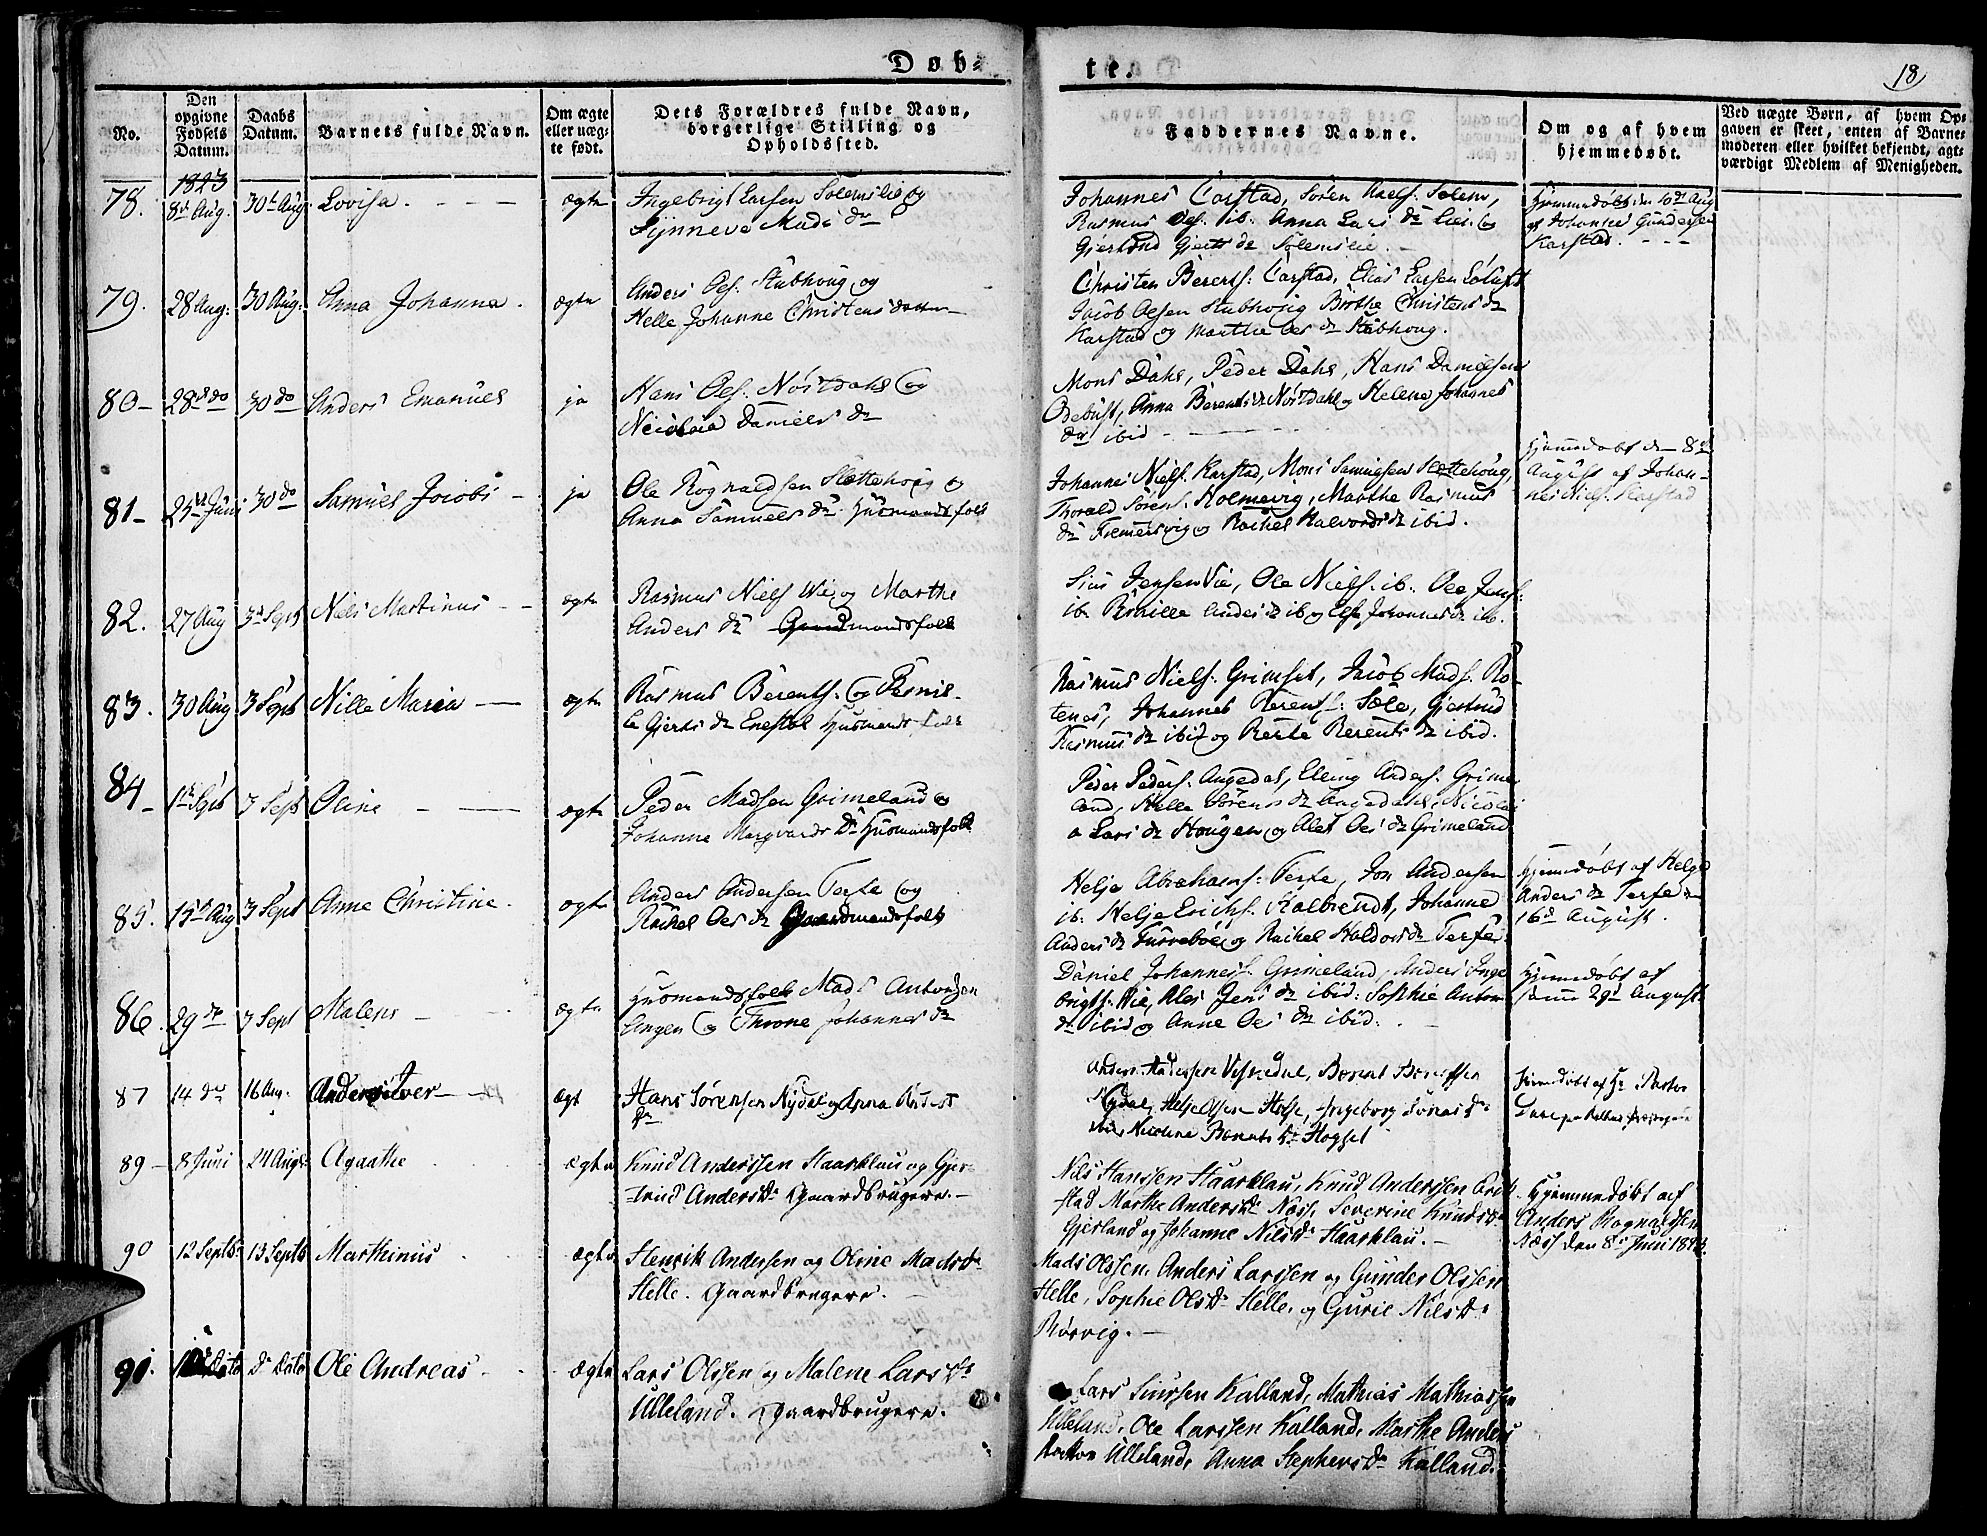 Døb-
te.
18
No.
Den
opgivne
Fødsels
Datum.
Daabs
Datum.
Barnets fulde Navn.
Om ægte
eller uæg-
te født.
Dets Forældres fulde Navn,
borgerlige Stilling og
Opholdssted.
Faddernes Navne.
Om og af hvem
hjemmedøbt.
Ved uægte Børn, af hvem Op-
gaven er skeet, enten af Barne-
moderen eller hvilket bekjendt, agt-
værdigt Medlem af Menigheden.
1823
78. 8de Aug. 30t Aug Lovisa ægte
Ingebrigt Larsen Solemslie og
Synneve Mads dr
Johannes Carstad, Søren Solem,
Rasmus Oles. ib. Anna Lars dr og
Gjertrud Gjerts dr Solemslie.
Hjemmedøbt den 10de Aug
af Johannes Gundersen
Karstad.
79. 28 Aug: 30 Aug: Anna Johanna. ægte
Anders Oles: Stubhoug og
Helle Johanne Christens datter
Christen Berents: Carstad, Elias Larsen
Jacob Olesen Stubhoug Birthe Christens dr
Karstad og Marthe Oles dr Stubhoug.
80 28de do 30 do Anders Emanuel ja
Hans Oles. Nøstdahl og
Nicolaia Daniels dr
Mons Dahl, Peder Dahl, Hans Danielsen
Odebust, Anna Berents dr Nøstdahl og Helene Johannes
dr ibid
81 25de Juni 30 do Samuel Jacobi ja
Ole Rognaldsen Slettehoug og
Anna Samuels dr Husmandsfolk
Johannes Niels. Karstad, Mons Samuelsen Slettehoug,
Thorald Sørens. Holmevig, Marthe Rasmus
dr og Rachel Halvords dr ibid.
Hjemmedøbt den 8de
August af Johan-
nes Niels. Karstad
82. 27 Aug 3d Sept Niels Martinus ægte
Rasmus Niels Wie og Marthe
Anders dr Gaardmandsfolk
Jensen Vie, Ole Niels. ib. Ole Jens:
ib. Pernille Anders dr ib og Else Johannes dr ib.
83. 30 Aug 3 Sept Nille Maria ægte
Rasmus Berents. og Pernil-
le Gjerts dr Enestøl Husmands folk
Rasmus Niels: Grimset, Jacob Mads. Ro-
tenes, Johannes Berents: Sæle, Gjertrud
Rasmus dr ibid og Berte Berents dr ibid.
84 1ste Sept 3 Sept Oline ægte
Peder Madsen Grimeland og
Johanne Margvards Dr Husmandsfolk
Peder Peders. Angedal, Elling Anders. Grime-
land, Helle Sørens dr Angedahl, Nicolai-
a Lars dr Hougen og Alet Oles dr Grimeland
85. 15de Aug 3 Sept Anne Christine. ægte
Anders Andersen Terfe og
Rachel Oles dr Gaardmandsfolk
Helje Abrahams: Terfe, Jon Andersen
ib. Helje Erichs. Kalbendt, Johanne
Anders dr Furreboe og Rachel Haldors dr Terfe.
Hjemmedøbt af Helge
Anders dr Terfe den
16de August.
86. 29 do 3 Sept Malene ægte
Husmandsfolk Mads Antonsen
Engen og Throne Johannes dr
Daniel Johannes. Grimeland, Anders Inge-
brigts. Vie, Ales Jens dr ibid: Sophie Anton
dr ibid og Anne Oles dr ibid:
Hjemmedøbt af
29de August
87 14 do 16 Aug. Anders Iver ægt
Hans Sørensen Nydal og Anna Anders
Dr
Anders Andersen, Berent Berentsen
Nydal, Helje Olsen, Ingeborg Jonas Dr
Nicoline Berents Dr Hogset
Hjemdøbt af Hr Pastor
89 8 Juni 24 Aug. Agaathe ægte
Knud Andersen Haarklau og Gjer-
trud Anders Dr Gaardbrugere.
Nils Hanssen Haarklau, Knud Anderssen Erik-
stad Marthe Anders Dr Næss, Severine Knuds Dr
Gjerland og Johanne Nils Dr Haarklau.
Hjemmedøbt af
Anders Rognaldsen
Næss den 8de Juni 1823.
90 12 Septb 13 Septb Marthinus ægte
Henrik Andersen og Oline Mads Dr
Helle. Gaardbrugere.
Mads Olssen, Anders Larssen og Gunder Olssen
Helle, Sophie Ols Dr Helle, og Gurie Nils Dr
Rørvig.
91. Dato Do Dato Ole Andreas ægte
Lars Olssen og Malene Lars Dr
Ulleland. Gaardbrugere.
Lars Siurssen Kalland, Mathias Mathiassen
Ulleland, Ole Larssen Kalland, Marthe Anders
datter Ulleland, Anna Stephens Dr Kalland.